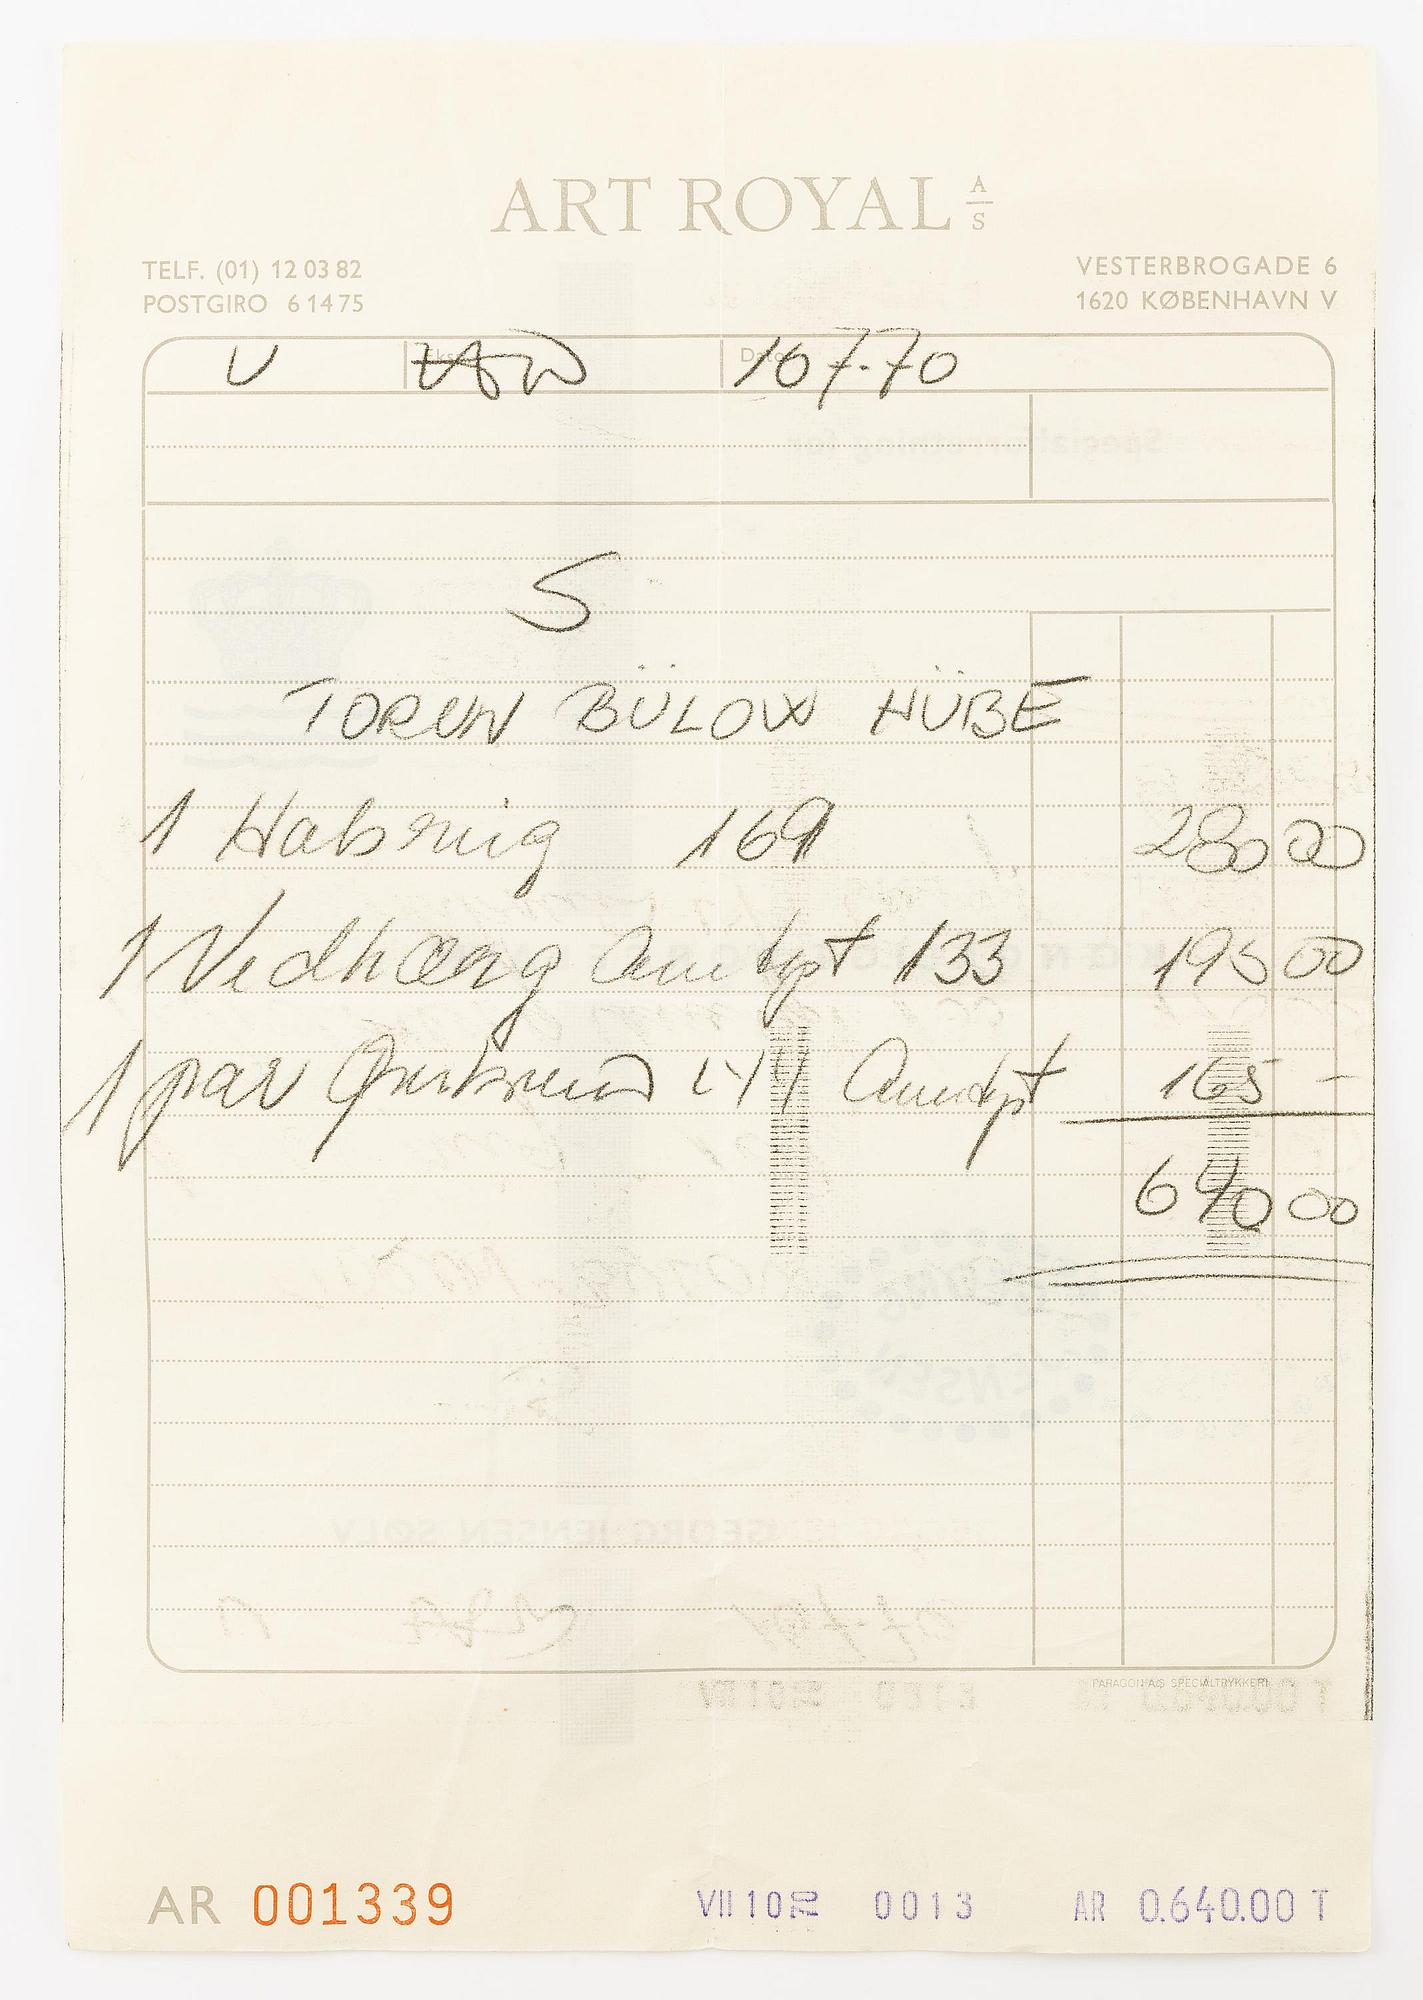 ART ROYAL A/S
TELF. (01) 12 03 82
POSTGIRO 6 14 75
VESTERBROGADE 6
1620 KØBENHAVN V
U Dato 10 7.70
S
TORUN BÜLOW HÜBE
1 Halsring 169 280 00
1 Vedhæng Ametyst 133 195 00
1 par Ørebrend 144 Ametyst 165 —
640 00
PARAGON A/S SPECIALTRYKKERI
AR 001339
VII 10 70 0013 AR 0.640.00 T